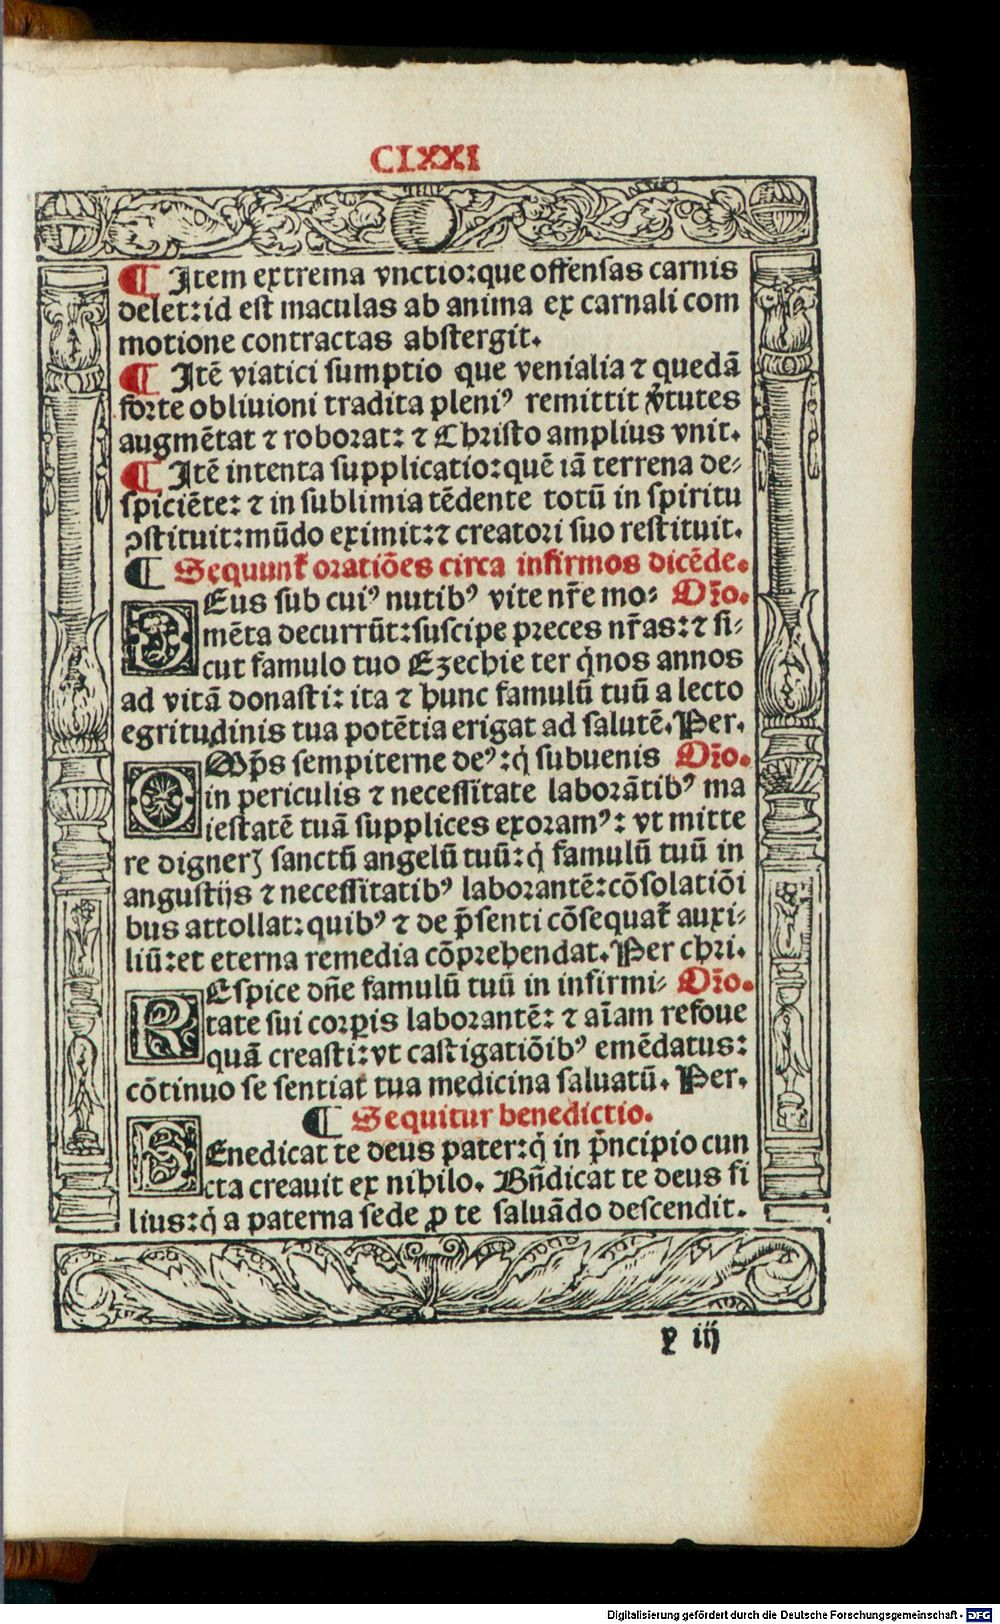 CLXXI
¶ Item extrema vnctio: que offensas carnis
delet: id est maculas ab anima ex carnali com
motione contractas abstergit.
¶ Itē viatici sumptio que venialia ⁊ quedā
forte obliuioni tradita pleniꝰ remittit v̓tutes
augmētat ⁊ roborat: ⁊ Christo amplius vnit.
¶ Itē intenta supplicatio: quē iā terrena de⸗
spiciēte: ⁊ in sublimia tēdente totū in spiritu
ꝯstituit: mūdo eximit: ⁊ creatori suo restituit.
¶ Sequunt᷑ oratiōes circa infirmos dicēde.
DEus sub cuiꝰ nutibꝰ vite nr̄e mo⸗ Or̄o.
mēta decurrūt: suscipe preces nr̄as: ⁊ si⸗
cut famulo tuo Ezechie ter q̇nos annos
ad vitā donasti: ita ⁊ hunc famulū tuū a lecto
egritudinis tua potētia erigat ad salutē. Per.
OMp̄s sempiterne deꝰ: q̇ subuenis Or̄o.
in periculis ⁊ necessitate laborātibꝰ ma
iestatē tuā supplices exoramꝰ: vt mitte
re dignerȷ sanctū angelū tuū: q̇ famulū tuū in
angustijs ⁊ necessitatibꝰ laborantē: cōsolatiōi
bus attollat: quibꝰ ⁊ de p̄senti cōsequat᷑ auxi⸗
liū: et eterna remedia cōprehendat. Per chri.
REspice dn̄e famulū tuū in infirmi⸗ Or̄o.
tate sui corꝑis laborantē: ⁊ aīam refoue
quā creasti: vt castigatiōibꝰ emēdatus:
cōtinuo se sentiat tua medicina saluatū. Per.
¶ Sequitur benedictio.
BEnedicat te deus pater: q̇ in p̄ncipio cun
cta creauit ex nihilo. Bn̄dicat te deus fi
lius: q̇ a paterna sede ꝓ te saluādo descendit.
y iij
Digitalisierung gefördert durch die Deutsche Forschungsgemeinschaft - DFG